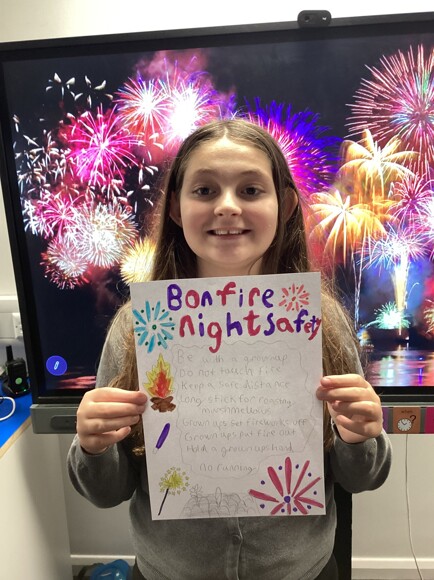 Bonfire
nightsafty
Be with a grownup
Do not touch fire
Keep a safe distance
Long stick for roasting
marshmellows
Grown ups set fireworks off
Grown ups put fire out
Hold a grown ups hand
No running